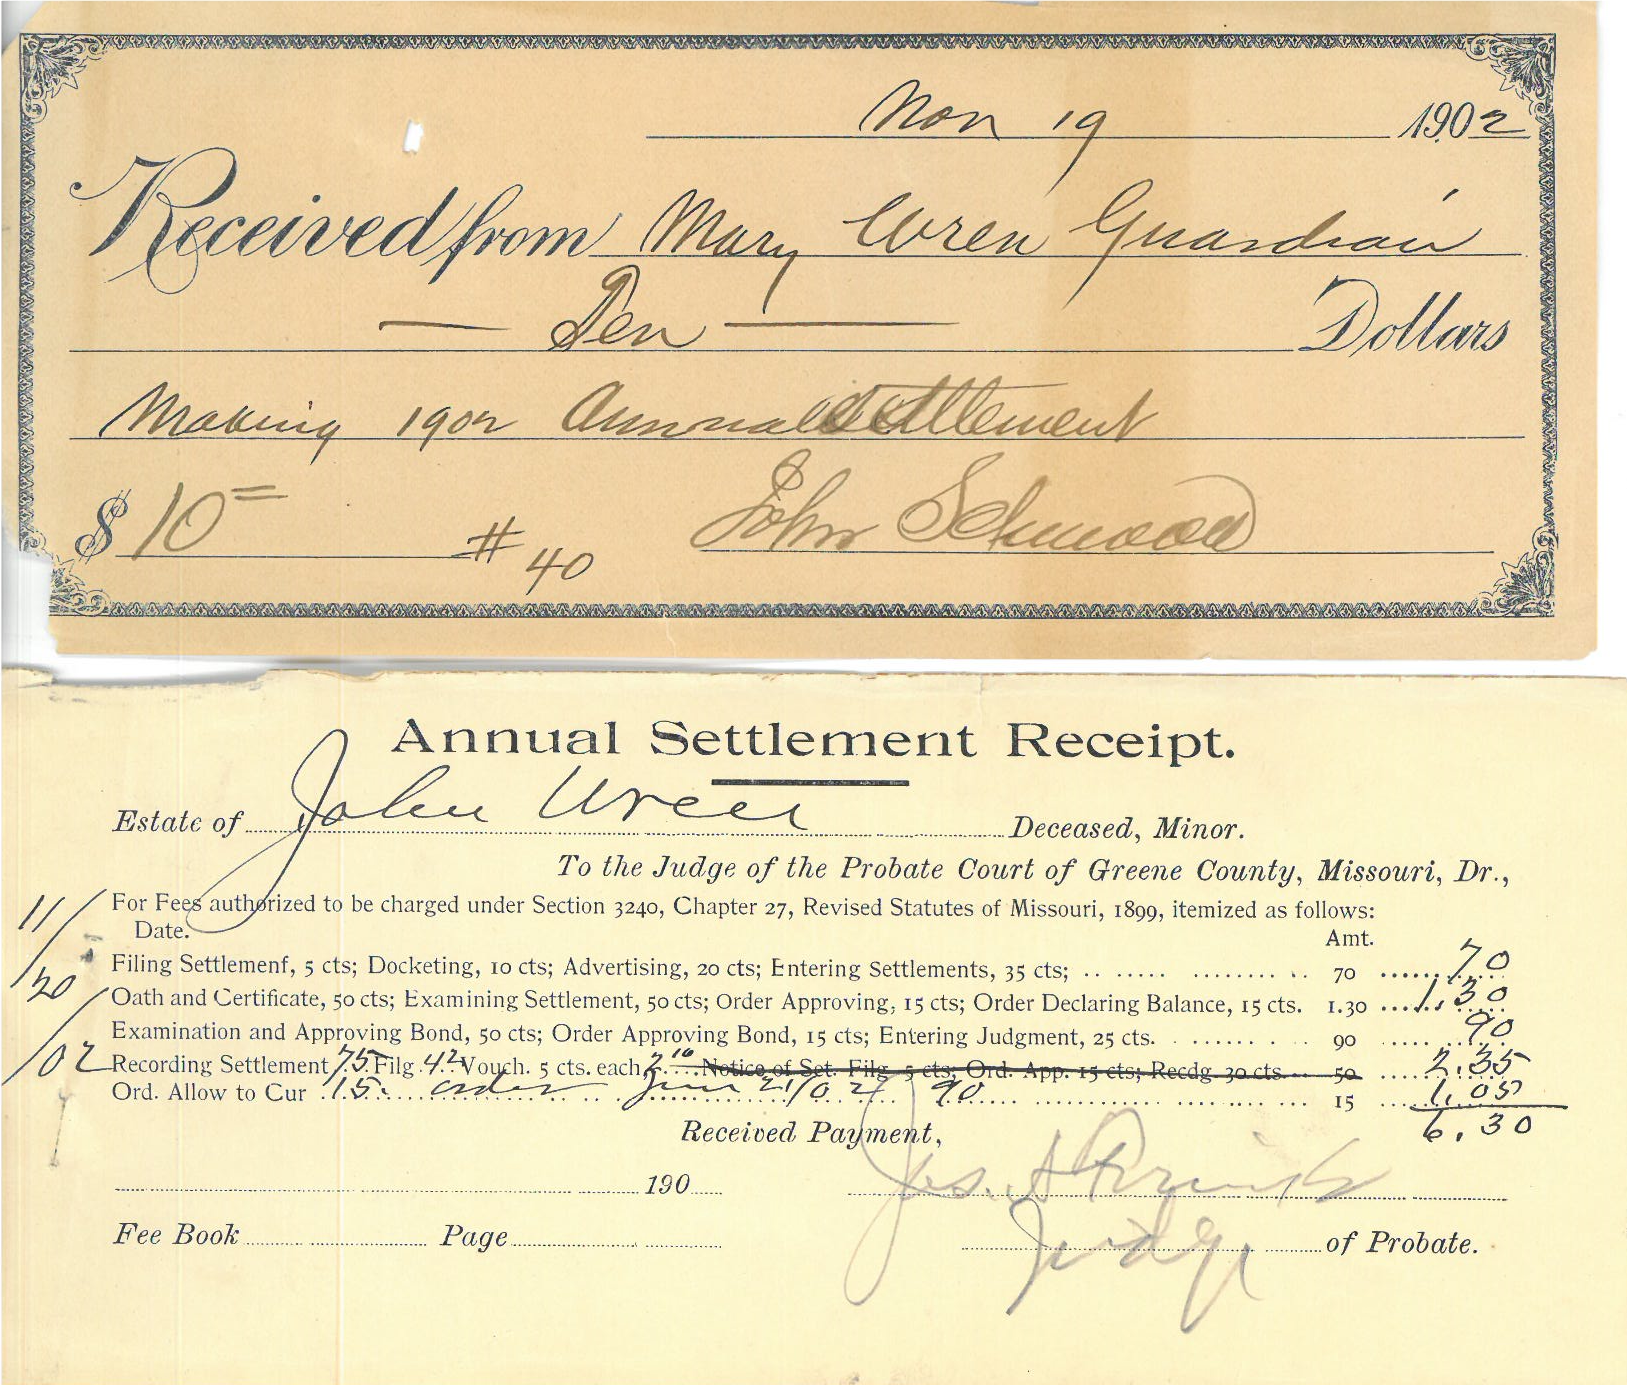 Nov 19 1902
Received from Mary Wren Guardian
— Ten — Dollars
Making 1902 Annual Settlement
$ 10= # 40 John Schmook
Annual Settlement Receipt.
Estate of John Wren Deceased, Minor.
To the Judge of the Probate Court of Greene County, Missouri, Dr.,
11/20/02
For Fees authorized to be charged under Section 3240, Chapter 27, Revised Statutes of Missouri, 1899, itemized as follows:
Date. Amt.
Filing Settlement, 5 cts; Docketing, 10 cts; Advertising, 20 cts; Entering Settlements, 35 cts; 70 70
Oath and Certificate, 50 cts; Examining Settlement, 50 cts; Order Approving, 15 cts; Order Declaring Balance, 15 cts. 1.30 1.30
Examination and Approving Bond, 50 cts; Order Approving Bond, 15 cts; Entering Judgment, 25 cts. 90 90
Recording Settlement 75 Filg 42 Vouch. 5 cts. each 2.10 Notice of Set. Filg 5 cts; Ord. App. 15 cts; Recdg. 30 cts. 50 2.35
Ord. Allow to Cur 15. order June 2/02 90 15 1.05
6.30
Received Payment,
190 Jas. J
Fee Book Page Judge of Probate.